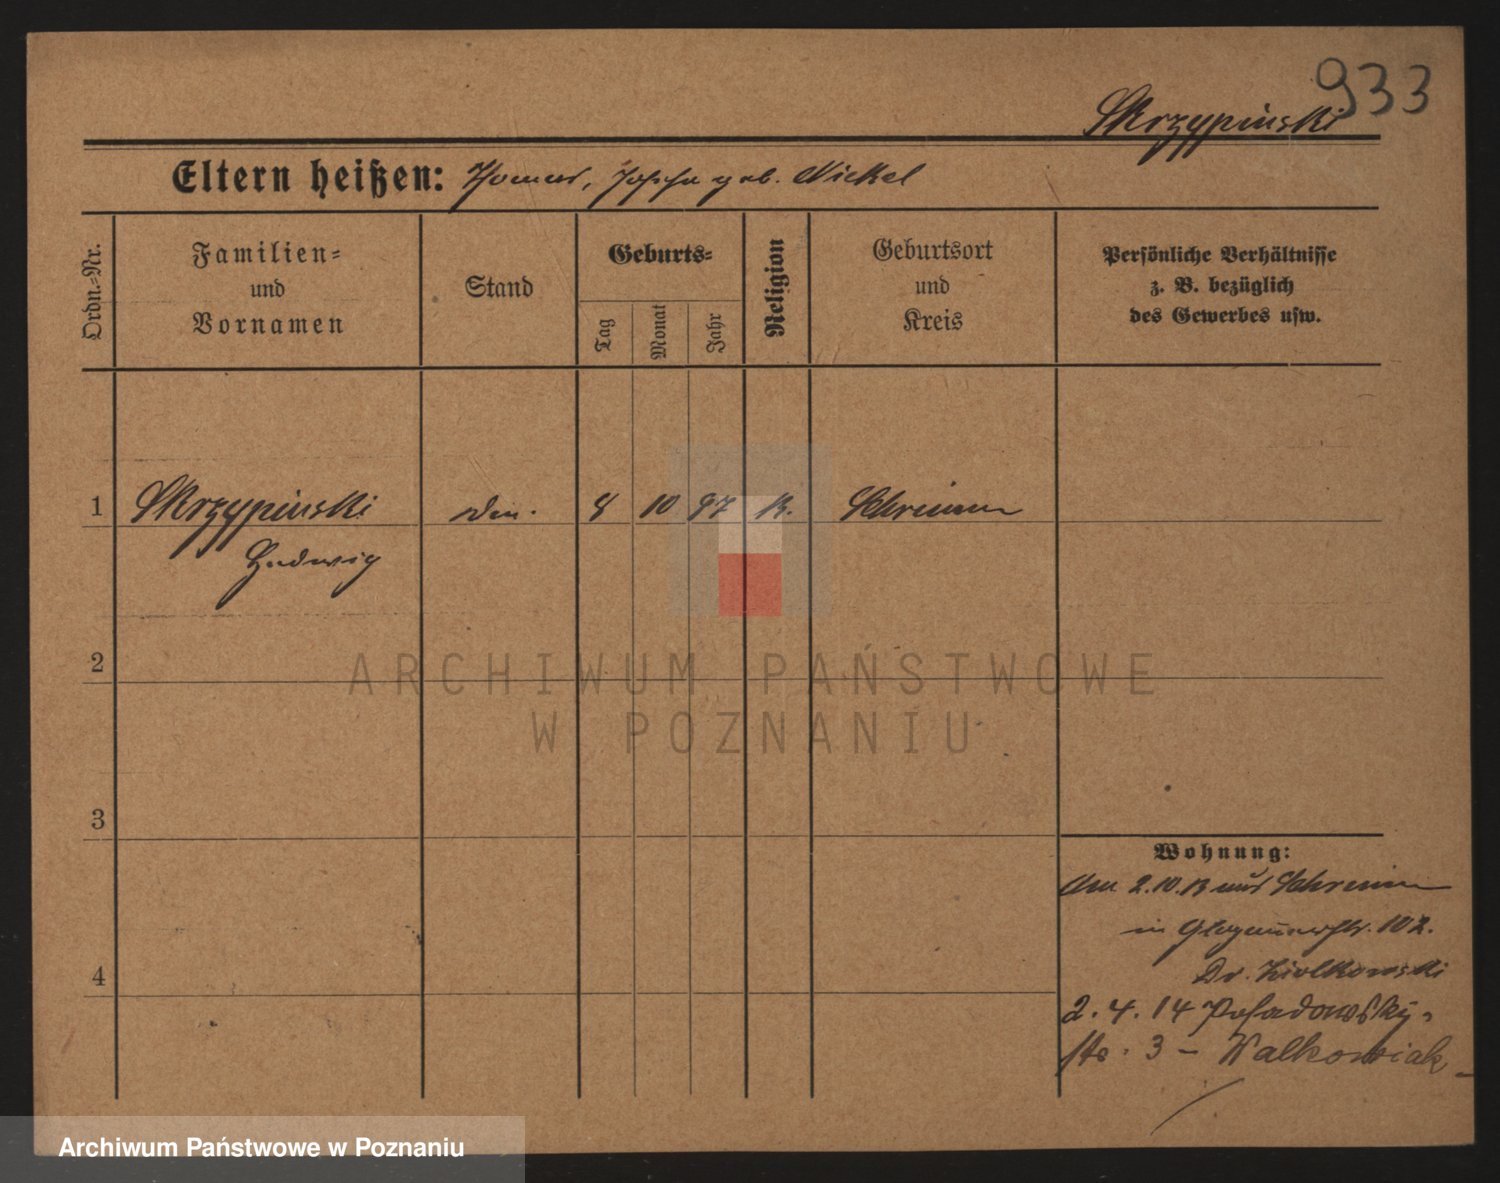 933
Skrzypinski
Eltern heißen: Thomas, Josefa geb. Nickel
Ordn.-Nr.
Familien-
und
Vornamen
Stand
Geburts-
Tag
Monat
Jahr
Religion
Geburtsort
und
Kreis
Persönliche Verhältnisse
z. B. bezüglich
des Gewerbes usw.
1 Skrzypinski 8 10 97 k. Schrimm
Hedwig
2
3
4
ARCHIWUM PAŃSTWOWE
W POZNANIU
Wohnung:
Am 2.10.13 aus Schrimm
in Glogauerstr. 102.
Dr. Ziolkowski
2.4.14 Posadowsky-
str. 3 - Walkowiak
Archiwum Państwowe w Poznaniu